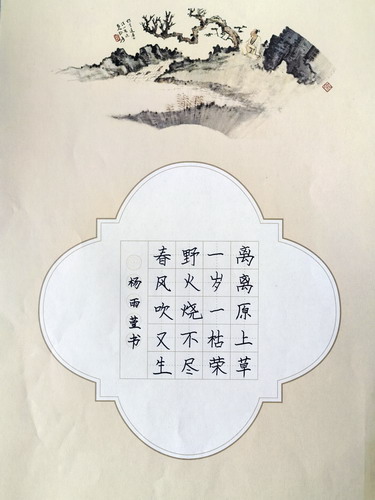 离离原上草
一岁一枯荣
野火烧不尽
春风吹又生
杨雨萱书